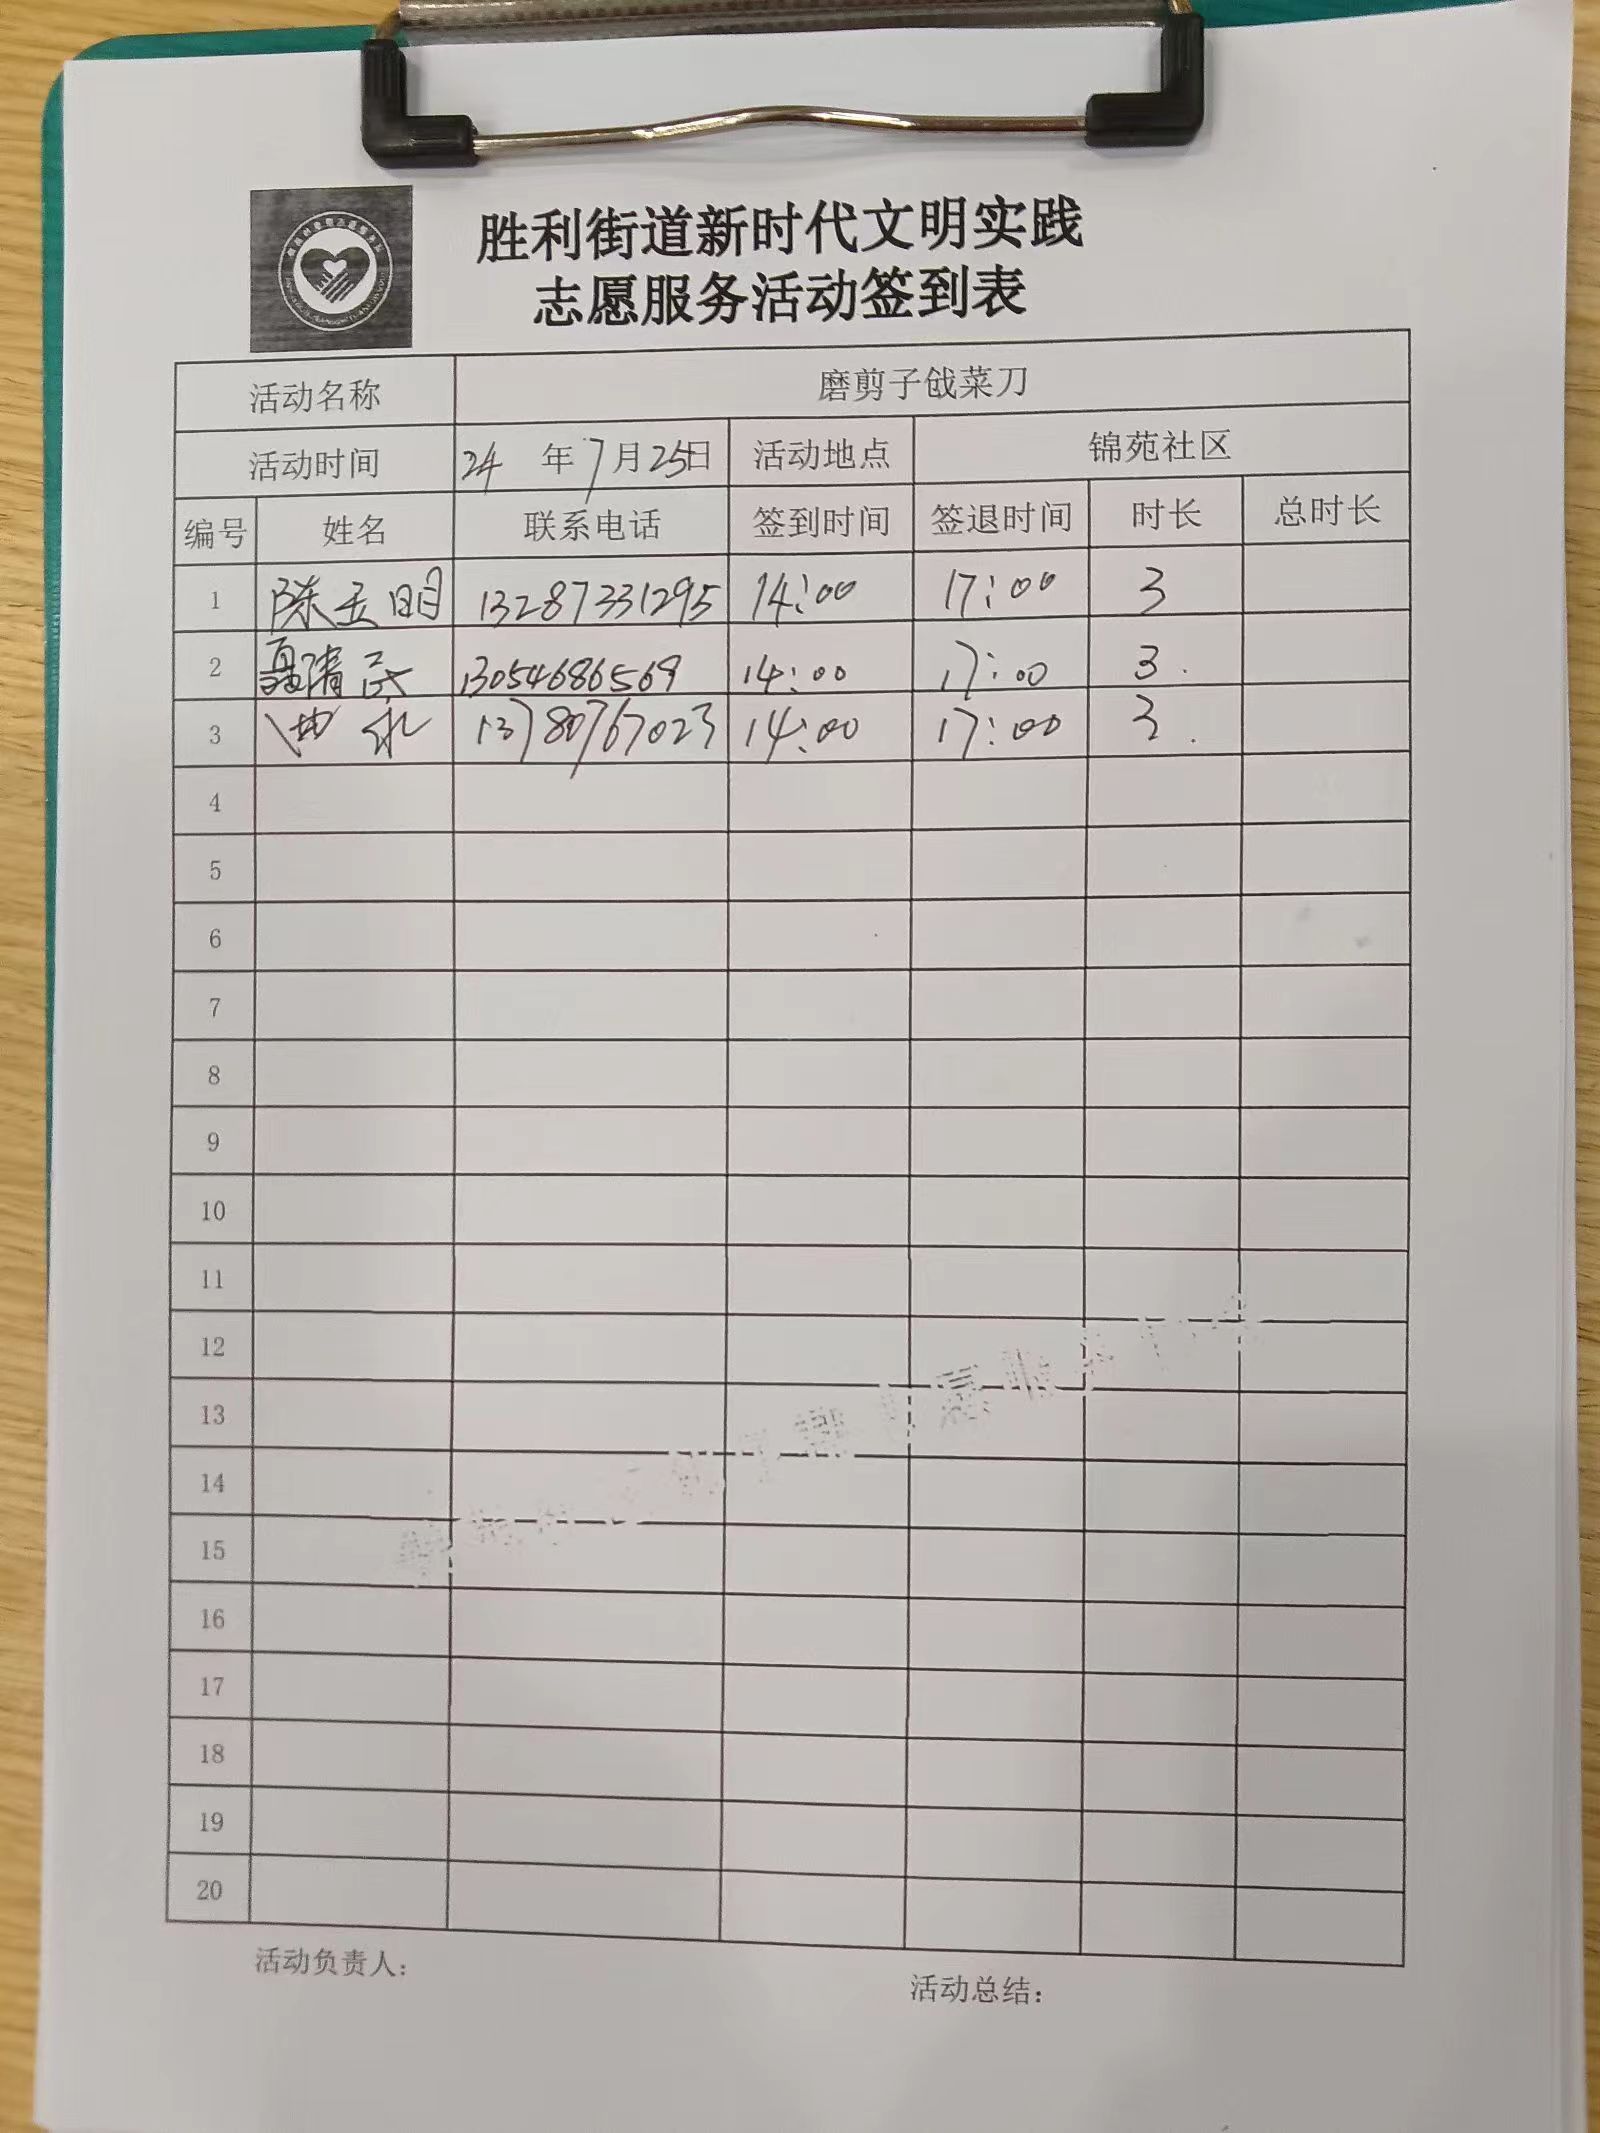 胜利街道新时代文明实践
志愿服务活动签到表
活动名称 磨剪子戗菜刀
活动时间 24 年 7月25日 活动地点 锦苑社区
编号 姓名 联系电话 签到时间 签退时间 时长 总时长
1 陈玉明 13287331295 14:00 17:00 3
2 聂清民 13054686569 14:00 17:00 3.
3 13780767023 14:00 17:00 3.
4
5
6
7
8
9
10
11
12
13
14
15
16
17
18
19
20
活动负责人：
活动总结：